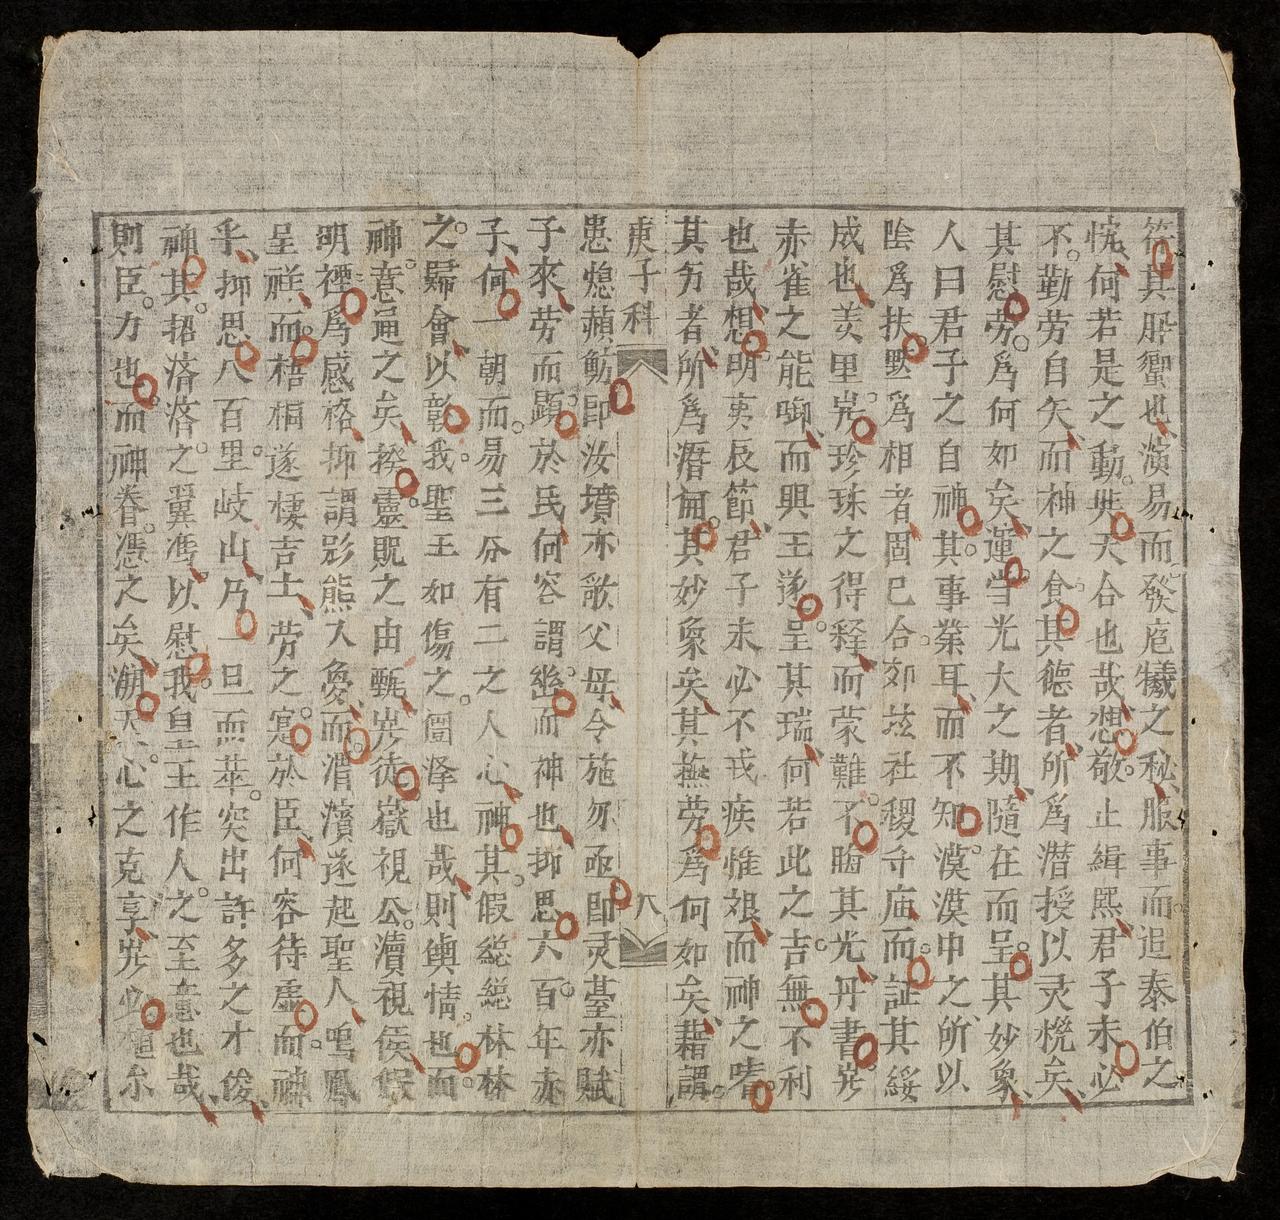 符其肸蠁也演易而發庖犧之秘服事而追泰伯之
恍何若是之動與天合也哉想敬止緝熙君子未必
不勤劳自矢而神之食其德者所爲潜授以灵机矣
其慰劳爲何如矣運当光大之期隨在而呈其妙象
人曰君子之自神其事業耳而不知漠漠中之所以
陰爲扶默爲相者固已合郊垓社稷寺庙而証其綏
成也羑里岂珍珠之得释而蒙難不晦其光丹書岂
赤雀之能啣而興王遂呈其瑞何若此之吉無不利
也哉想明夷辰節君子未必不我疾惟艰而神之嗜
其芳者所爲潜甫其妙象矣其撫劳爲何如矣藉謂
庚子科
八
愚熄蘋魴即汝墳亦歌父母令施勿亟即灵臺亦賦
子來劳而顕於民何容謂幽而神也抑思六百年赤
子何一朝而易三分有二之人心神其假総総林林
之歸會以彰我聖王如傷之圖擇也哉則輿情也而
神意通之矣揆靈貺之由甄岂徒嶽視公瀆視侯假
明禋爲感格抑謂影熊入夐而渭濱遂起聖人鳴鳳
呈祥而梧桐遂棲吉士劳之寔於臣何容待虚而神
乎抑思八百里岐山乃一旦而萃突出許多之才俊
神其搭济济之翼馮以慰我皇王作人之至意也哉
則臣力也而神眷憑之矣溯天心之克享岂必植尓